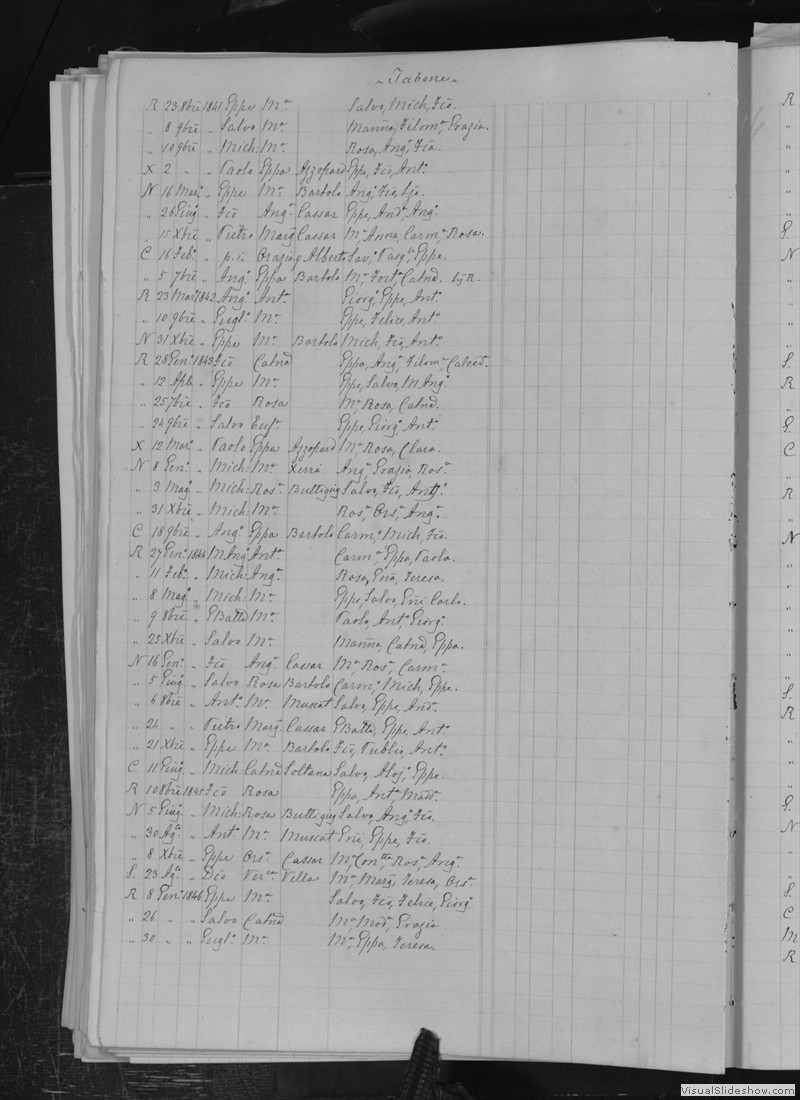 ~ Tabone ~
R 23 8bre 1841 Eppe Mª Salvo, Mich, Fcō.
„ 8 9bre „ Salvo Mª Manna, Filomª, Grazia.
„ 10 9bre „ Mich: Mª Rosa, Angª, Fcā.
X 2 „ „ Paolo Eppa Azzopard Eppe, Fcō, Antº.
N 16 Marº „ Eppe Mª Bartolo Angº, Fcō,
„ 26 Giug „ Fcō Angª Cassar Eppe, Andª, Angª.
„ 15 Xbre „ Pietro Marg Cassar Mª, Anna, Carmª, Rosa.
C 16 Febº „ p.i. Grazia g Albert Savº, Pasqª, Eppe.
„ 5 7bre „ Angº Eppa Bartolo Mª, Fortª, Catnā.
R 23 Marº 1842 Angº Antª Giorgº, Eppe, Antº.
„ 10 9bre „ Guglº Mª Eppe, Felice, Antº.
N 31 Xbre „ Eppe Mª Bartolo Mich, Fcō, Antº.
R 28 Genº 1843 Fcō Catnā Eppa, Angª, Filomª, Calced.
„ 12 Aple „ Eppe Mª Eppe, Salvo, M Angº.
„ 25 7bre „ Fcō Rosa Mª, Rosa, Catnā.
„ 24 9bre „ Salvo Eufª Eppe, Giorgº, Antº.
X 12 Marº „ Paolo Eppa Azzopard Mª, Rosa, Clara.
N 8 Genº „ Mich: Mª Xerri Angª, Grazia, Rosª.
„ 3 Magº „ Mich: Rosª Buttigieg Salvo, Fcō, Antº.
„ 31 Xbre „ Mich: Mª Rosª, Orsª, Angª.
C 18 9bre „ Angº Eppa Bartolo Carmª, Mich, Fcō.
R 27 Genº 1844 M Angº Antª Carmª, Eppa, Paola.
„ 11 Febº „ Mich: Angª Rosa, Teresa.
„ 8 Magº „ Mich: Mª Eppe, Salvo, Enī, Carlo.
„ 9 8bre „ GBatta Mª Paolo, Antº, Giorgº.
„ 25 Xbre „ Salvo Mª Manna, Catnā, Eppa.
N 16 Genº „ Fcō Angª Cassar Mª, Rosª, Carmª.
„ 5 Giugº „ Salvo Rosa Bartolo Carmº, Mich, Eppe.
„ 6 8bre „ Antº Mª Muscat Salvo, Eppe, Andª.
„ 24 „ „ Pietro Marg. Cassar GBatta, Eppe, Antº.
„ 21 Xbre „ Eppe Mª Bartolo Fcō, Publio, Antº.
C 11 Giug. „ Mich: Catnā Soltana Salvo, Alojº, Eppe.
R 10 8bre 1845 Fcō Rosa Eppa, Antª, Madª.
N 5 Giug. „ Mich: Rosa Buttigieg Salvo, Angº, Fcō.
„ 30 Agto „ Antº Mª Muscat Enī, Eppe, Fcō.
„ 8 Xbre „ Eppe Orsª Cassar Mª, Contta, Rosª, Angª.
S. 23 Agto „ Dco Verca Vella Mª, Marg, Teresa, Orsª.
R 8 Genº 1846 Eppe Mª Salvo, Fcō, Felice, Giorgº.
„ 26 „ „ Salvo Catnā Mª, Madª, Grazia
„ 30 „ „ Guglº Mª Mª, Eppa, Teresa.
VisualSlideshow.com